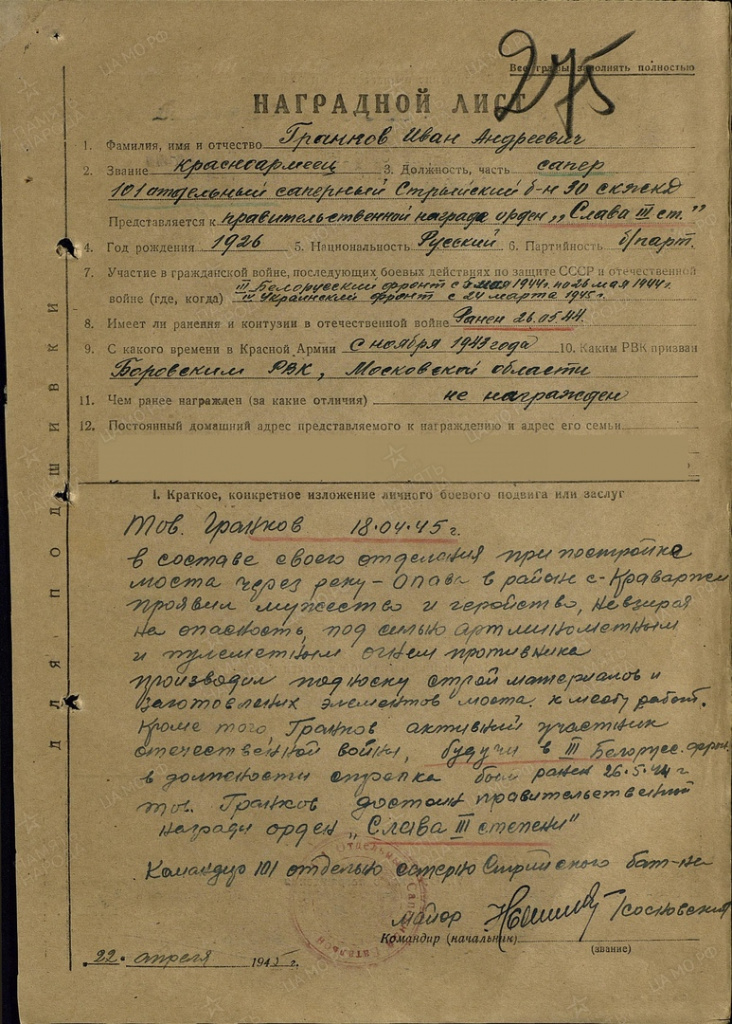 275
Все графы заполнять полностью
НАГРАДНОЙ ЛИСТ
1. Фамилия, имя и отчество Гранков Иван Андреевич
2. Звание красноармеец 3. Должность, часть сапер
101 отдельный саперный Стрыйский б-н 30 скжкд
Представляется к правительственной награде орден „Слава III ст."
4. Год рождения 1926 5. Национальность Русский 6. Партийность б/парт.
7. Участие в гражданской войне, последующих боевых действиях по защите СССР и отечественной
III Белорусский фронт с мая 1944г. по 26 мая 1944г.
войне (где, когда) IV Украинский фронт с 24 марта 1945г.
8. Имеет ли ранения и контузии в отечественной войне Ранен 26.05.44.
9. С какого времени в Красной Армии с ноября 1943 года 10. Каким РВК призван
Боровским РВК, Московской области
11. Чем ранее награжден (за какие отличия) не награжден
12. Постоянный домашний адрес представляемого к награждению и адрес его семьи
I. Краткое, конкретное изложение личного боевого подвига или заслуг
Тов. Гранков 18.04.45 г.
в составе своего отделения при постройке
моста через реку-Опава в район с-Краварже
проявил мужество и геройство, невзирая
на опасность, под силью артминометным
и пулеметным огнем противника
производил подноску стройматериалов и
заготовленых элементов моста к месту работ.
Кроме того, Гранков активный участник
отечественной войны, будучи в III Белорус. фрон
в должности стрелка был ранен 26.5.44 г
тов. Гранков достоин правительственной
награды орден „Слава III степени"
Командир 101 отдельно саперно Стрийского бат-на
майор /Сосновский
Командир (начальник)
(звание)
22. апреля 1945 г.
ДЛЯ ПОДШИВКИ